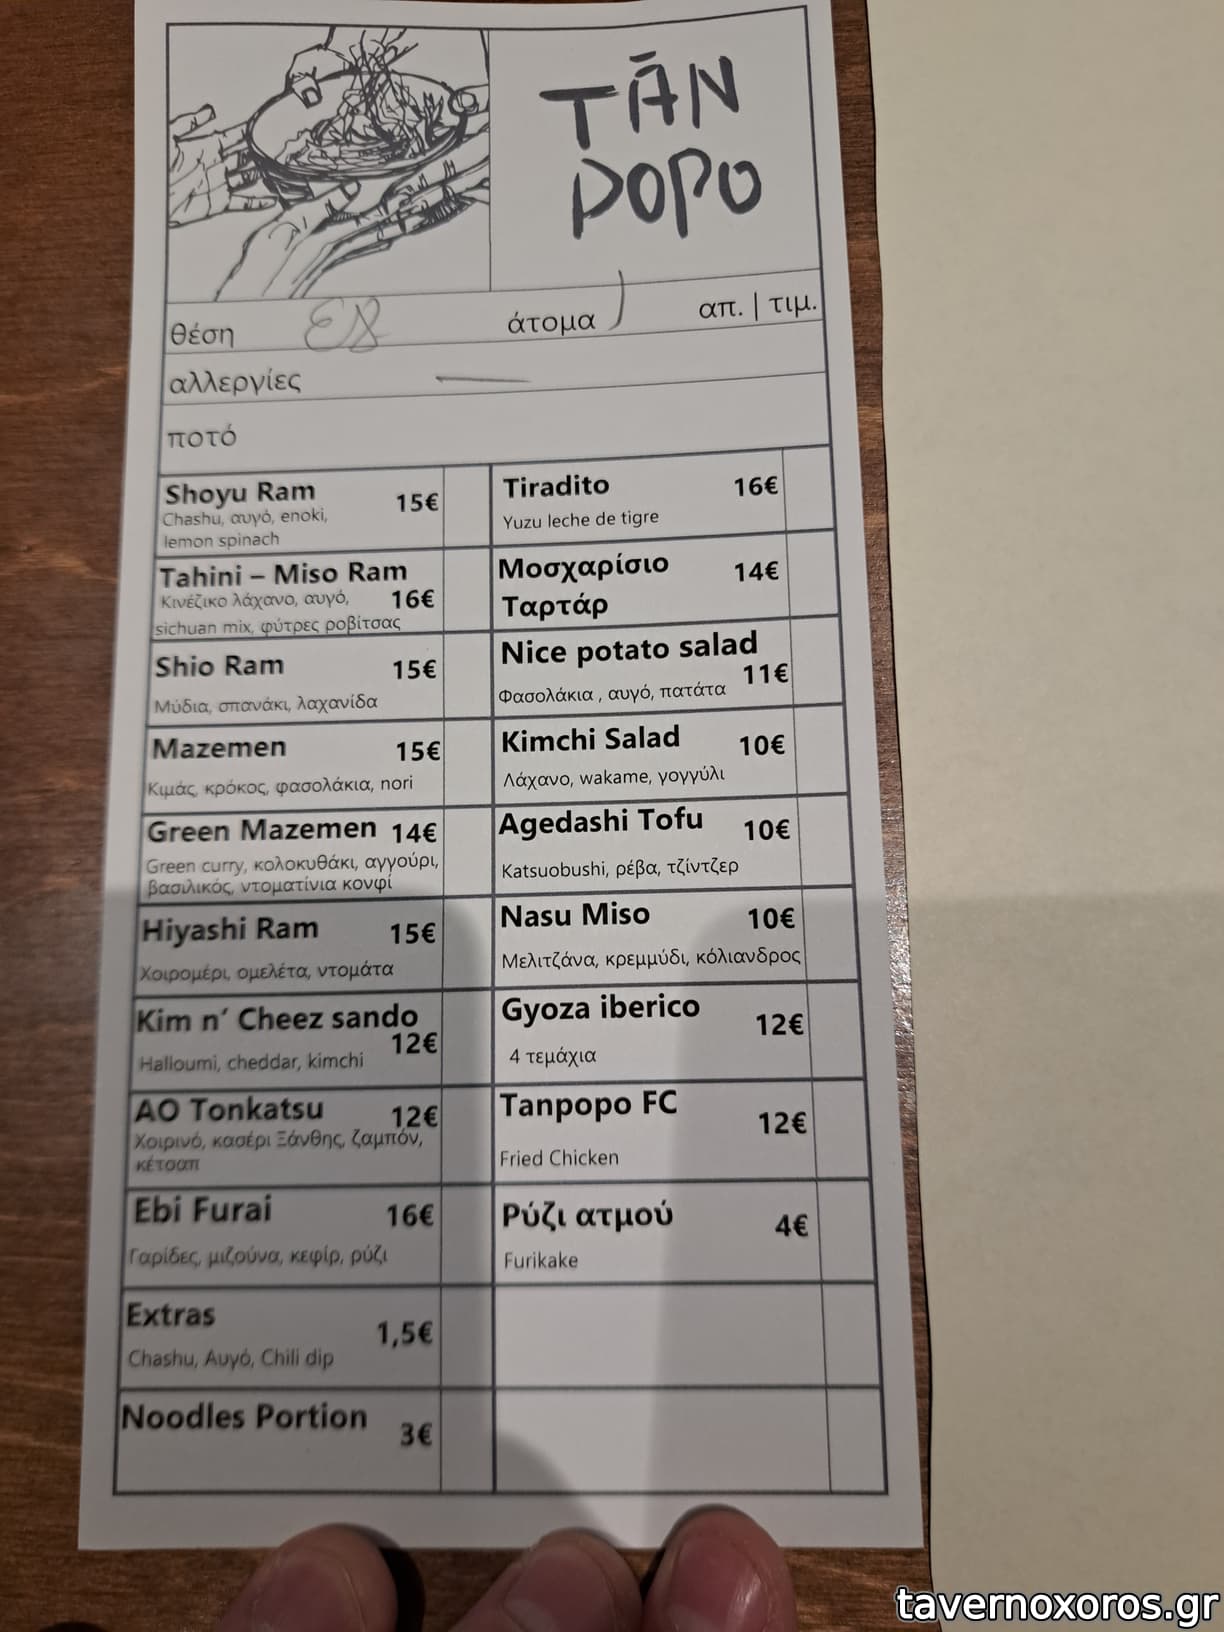 TĀN
POPO
θέση E8 άτομα 1 απ. | τιμ.
αλλεργίες —
ποτό
Shoyu Ram 15€
Chashu, αυγό, enoki,
lemon spinach
Tahini – Miso Ram
Κινέζικο λάχανο, αυγό, 16€
sichuan mix, φύτρες ροβίτσας
Shio Ram 15€
Μύδια, σπανάκι, λαχανίδα
Mazemen 15€
Κιμάς, κρόκος, φασολάκια, nori
Green Mazemen 14€
Green curry, κολοκυθάκι, αγγούρι,
βασιλικός, ντοματίνια κονφί
Hiyashi Ram 15€
Χοιρομέρι, ομελέτα, ντομάτα
Kim n’ Cheez sando
12€
Halloumi, cheddar, kimchi
AO Tonkatsu 12€
Χοιρινό, κασέρι Ξάνθης, ζαμπόν,
κέτσαπ
Ebi Furai 16€
Γαρίδες, μιζούνα, κεφίρ, ρύζι
Extras 1,5€
Chashu, Αυγό, Chili dip
Noodles Portion 3€
Tiradito 16€
Yuzu leche de tigre
Μοσχαρίσιο 14€
Ταρτάρ
Nice potato salad
11€
Φασολάκια , αυγό, πατάτα
Kimchi Salad 10€
Λάχανο, wakame, γογγύλι
Agedashi Tofu 10€
Katsuobushi, ρέβα, τζίντζερ
Nasu Miso 10€
Μελιτζάνα, κρεμμύδι, κόλιανδρος
Gyoza iberico 12€
4 τεμάχια
Tanpopo FC 12€
Fried Chicken
Ρύζι ατμού 4€
Furikake
tavernoxoros.gr